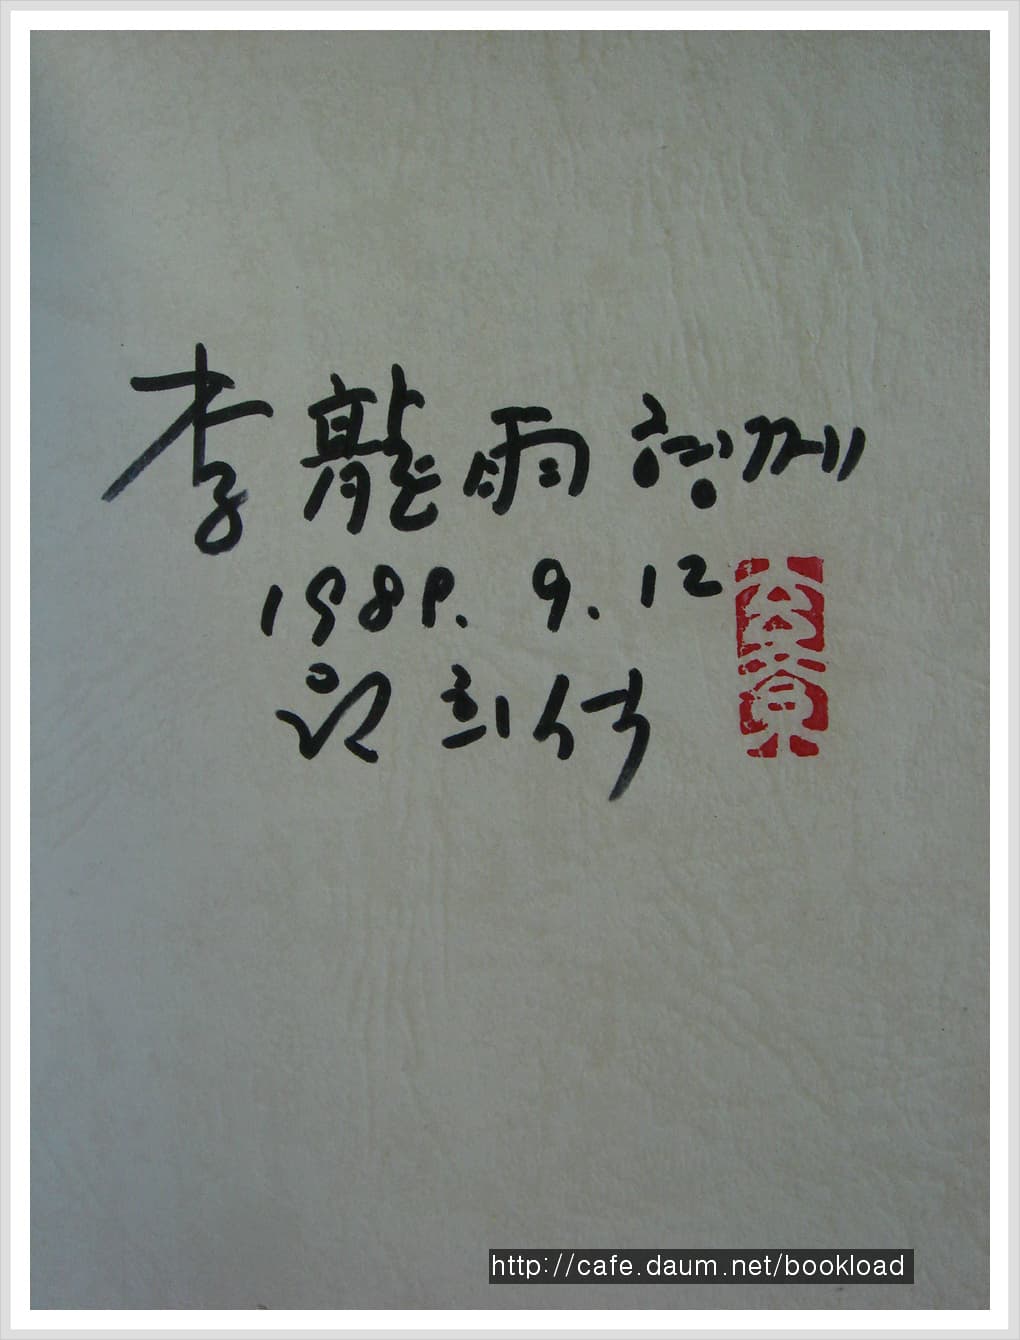 李龍雨 형께
1989. 9. 12
희석
http://cafe.daum.net/bookload